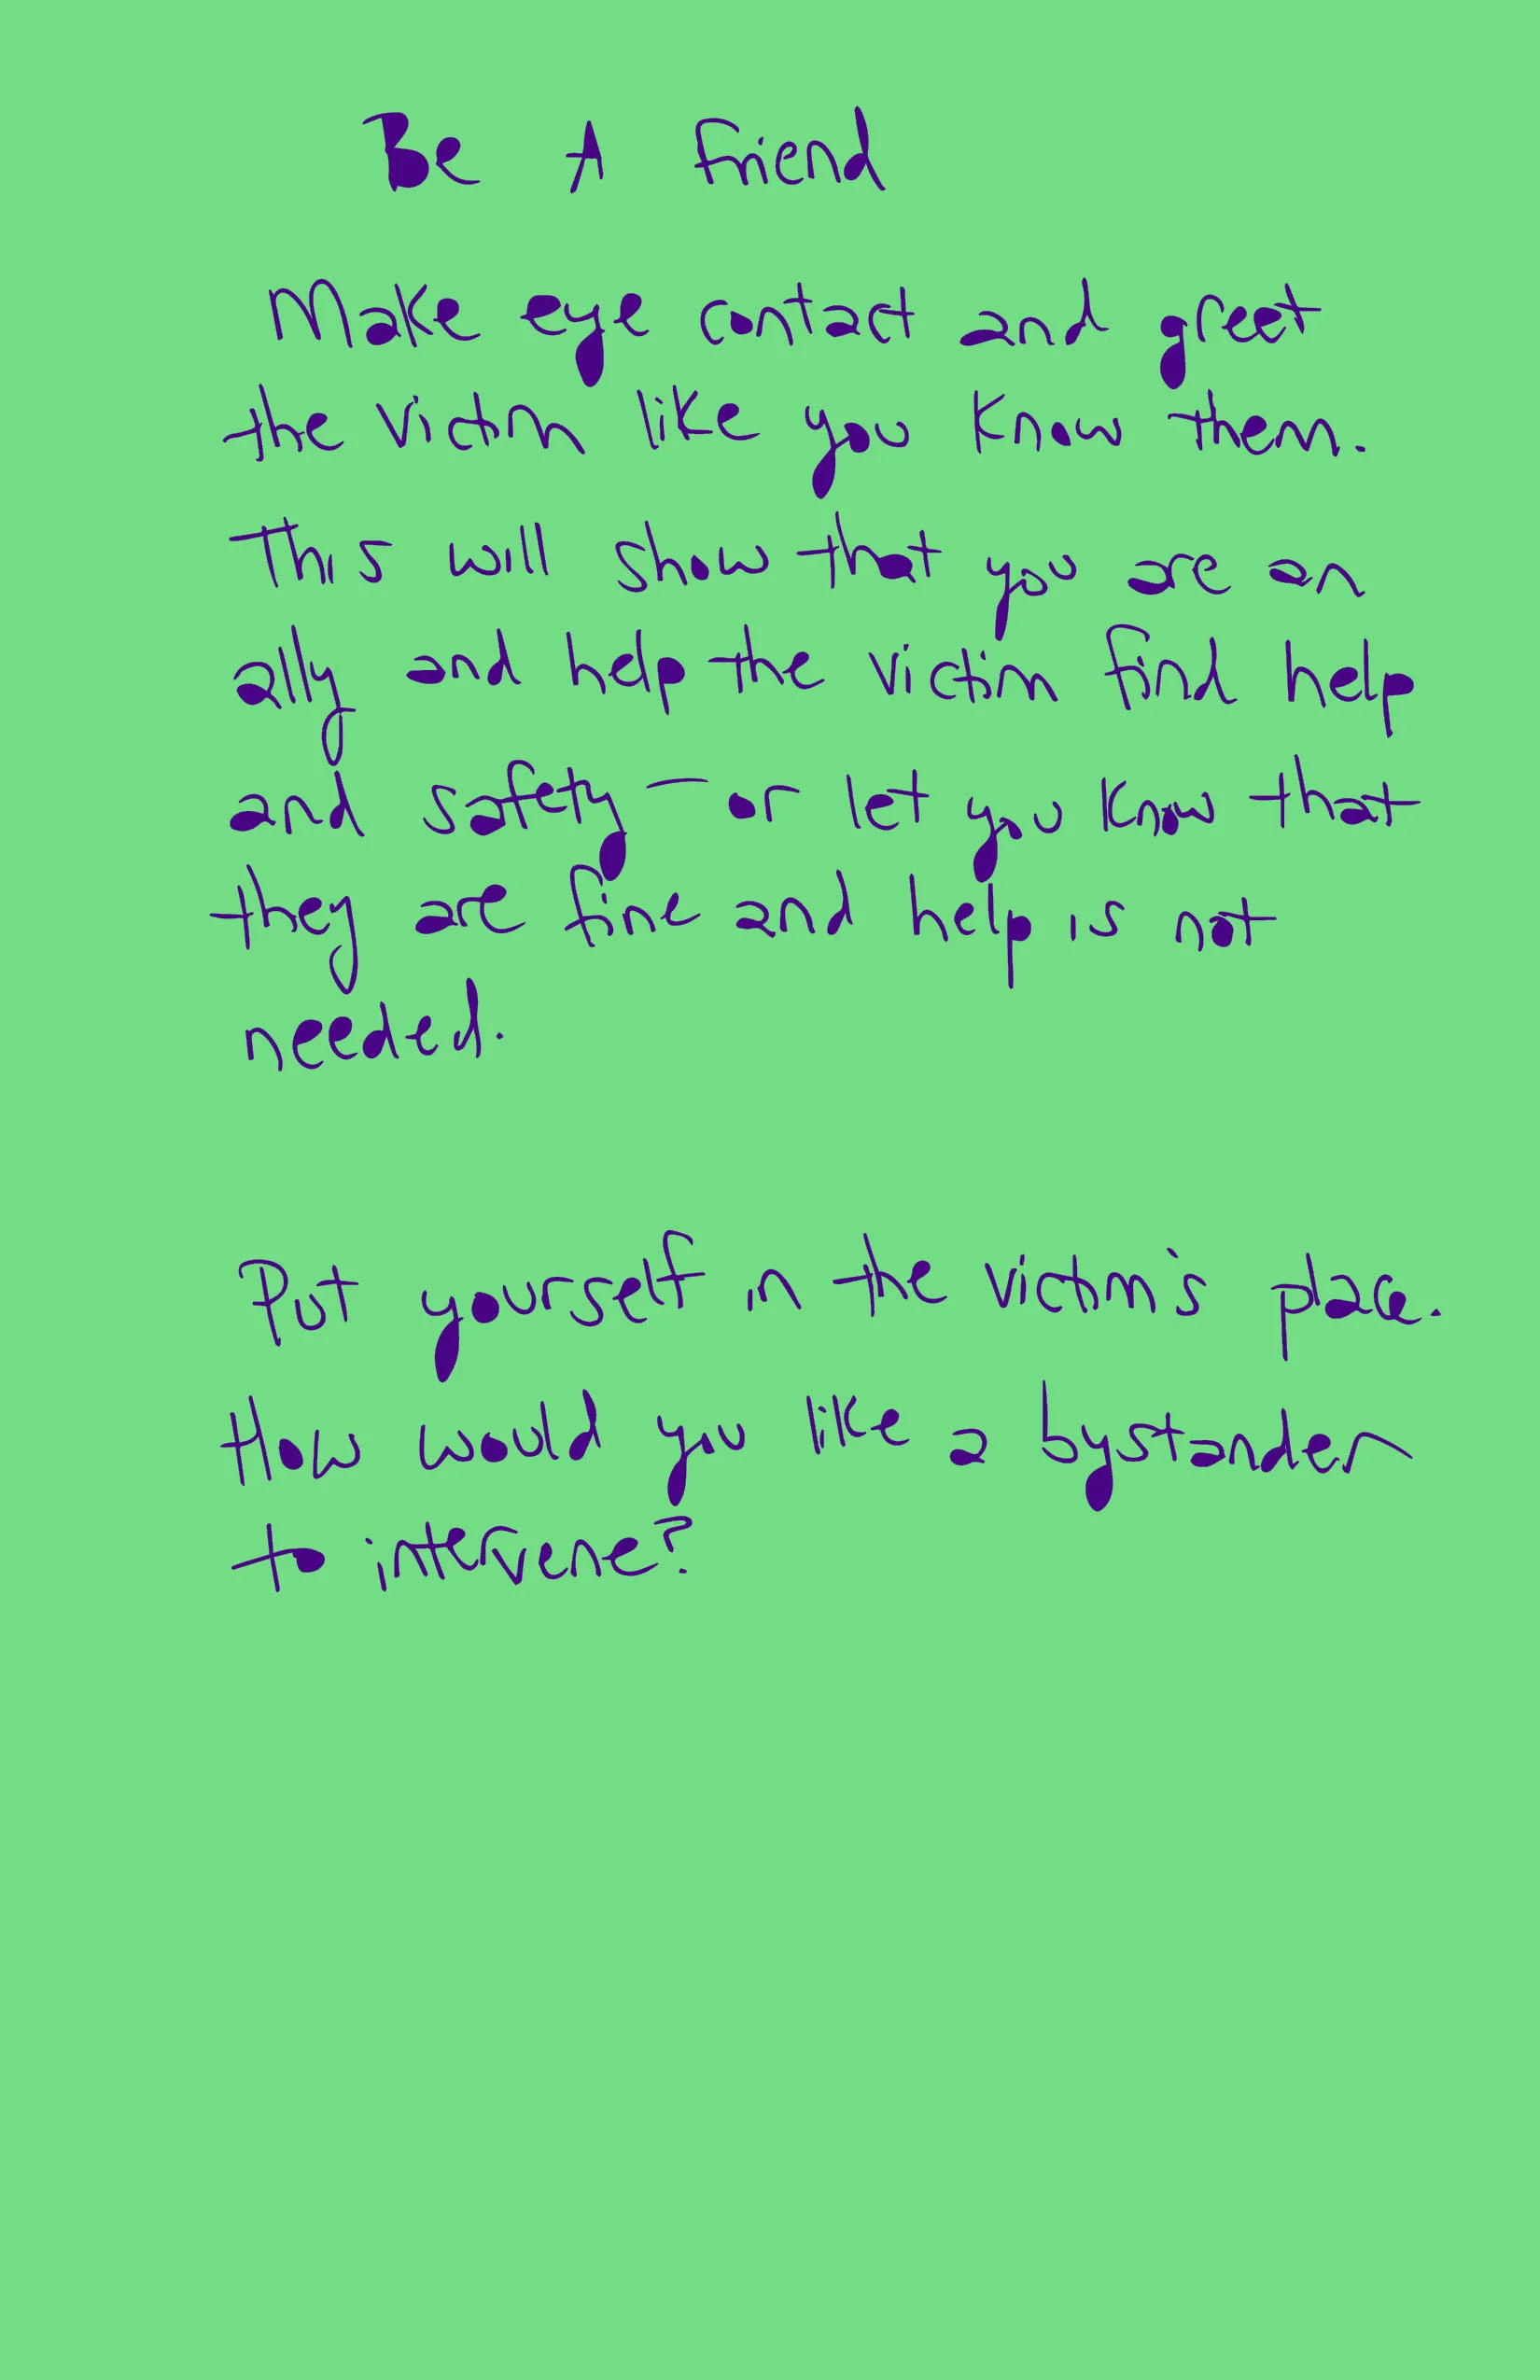 Be A Friend
Make eye contact and greet
the victim like you know them.
This will show that you are an
ally and help the victim find help
and safety — or let you know that
they are fine and help is not
needed.
Put yourself in the victim's place.
How would you like a bystander
to intervene?